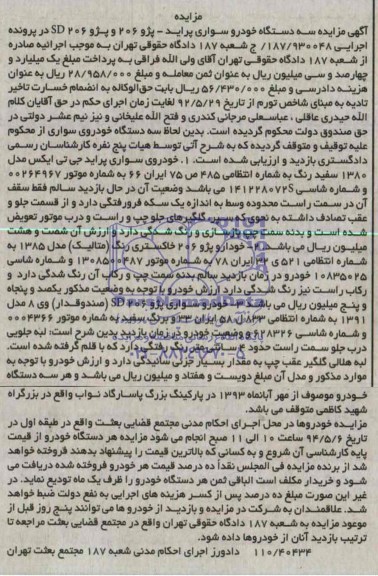 مزایده
آگهی مزایده سه دستگاه خودرو سواری پراید - پژو ۲۰۶ و پژو ۲۰۶ SD در پرونده
اجرایی ۱۸۷/۹۳۰۰۴۸/ج شعبه ۱۸۷ دادگاه حقوقی تهران به موجب اجرائیه صادره
از شعبه ۱۸۷ دادگاه حقوقی تهران آقای ولی الله فراقی به پرداخت مبلغ یک میلیارد و
چهارصد و سی میلیون ریال به عنوان ثمن معامله و مبلغ ۲۸/۹۵۸/۰۰۰ ریال به عنوان
هزینه دادرسی و مبلغ ۵۶/۴۳۰/۰۰۰ ریال بابت حق الوکاله به انضمام خسارت تاخیر
تادیه به مبنای شاخص تورم از تاریخ ۹۲/۵/۲۹ لغایت زمان اجرای حکم در حق آقایان کلام
الله حیدری عاقلی ، عباسعلی مرجانی کندری و فتح الله علیخانی و نیز نیم عشر دولتی در
حق صندوق دولت محکوم گردیده است. بدین لحاظ سه دستگاه خودروی سواری از محکوم
علیه توقیف و متوقف گردیده که به شرح آتی توسط هیات پنج نفره کارشناسان رسمی
دادگستری بازدید و ارزیابی شده است. ۱. خودروی سواری پراید جی تی ایکس مدل
۱۳۸۰ سفید رنگ به شماره انتظامی ۴۸۵ ص ۷۵ ایران ۶۶ به شماره موتور ۰۰۲۶۴۹۶۷
و شماره شاسی S۱۴۱۲۲۸۰۷۲ می باشد وضعیت آن در حال بازدید سالم فقط سقف
آن در سمت راست محدوده وسط به اندازه یک سکه فرورفتگی دارد و از قسمت جلو و
عقب تصادف داشته به نحوی که سپر، گلگیرهای جلو چپ و راست و درب موتور تعویض
شده است و بدنه سمت چپ بازسازی و رنگ شدگی دارد و ارزش آن شصت و هشت
میلیون ریال می باشد. ۲- خودرو پژو ۲۰۶ خاکستری رنگ (متالیک) مدل ۱۳۸۵ به
شماره انتظامی ۵۲۱ ی ۴۳ ایران ۷۸ به شماره موتور ۱۳۰۸۵۰۰۴۸۷ و شماره شاسی
۱۰۸۳۵۰۲۵ خودرو در زمان بازدید سالم بدنه سمت چپ و رکاب آن رنگ شدگی دارد و
رکاب راست نیز رنگ شدگی دارد ارزش خودرو با توجه به وضعیت مذکور یکصد و پنجاه
و پنج میلیون ریال می باشد ۳- خودرو سواری پژو ۲۰۶ SD (صندوقدار) وی ۸ مدل
۱۳۹۱ به شماره انتظامی ایران ۳۳ و برنگ سفید به شماره موتور ۰۰۰۴۳۶۶
و شماره شاسی ۶۲۸۳۲۶ و وضعیت خودرو در زمان بازدید بدین شرح است: لبه جلویی
درب جلو سمت راست حدود ۴ سانتی متر رنگ رفتگی دارد که با قلم گرفته شده است.
لبه هلالی گلگیر عقب چپ به مقدار بسیار جزئی سائیدگی دارد و ارزش خودرو با توجه به
موارد مذکور و مدل آن مبلغ دویست و هفتاد و میلیون ریال می باشد و هر سه دستگاه
خودرو موصوف از مهر آبانماه ۱۳۹۳ در پارکینگ بزرگ پاسارگاد نواب واقع در بزرگراه
شهید کاظمی متوقف می باشد.
مزایده خودروها در محل اجرای احکام مدنی مجتمع قضایی بعثت واقع در طبقه اول در
تاریخ ۹۴/۵/۶ ساعت ۱۰ الی ۱۱ صبح انجام می شود مزایده هر دستگاه خودرو از قیمت
پایه کارشناسی آن شروع و به کسانی که بالاترین قیمت را پیشنهاد بدهند فروخته خواهد
شد از برنده مزایده فی المجلس نقداً ده درصد قیمت هر خودرو فروخته شده دریافت می
شود و خریدار مکلف است الباقی ثمن هر دستگاه خودرو را ظرف یک ماه تودیع نماید. در
غیر این صورت مبلغ ده درصد پس از کسر هزینه های اجرایی به نفع دولت ضبط خواهد
شد. علاقمندان به شرکت در مزایده و بازدید از خودرو ها می توانند پنج روز قبل از
موعود مزایده به شعبه ۱۸۷ دادگاه حقوقی تهران واقع در مجتمع قضایی بعثت مراجعه تا
ترتیب بازدید آنان از خودروها داده شود.
۱۱۰/۴۰۴۳۴ دادورز اجرای احکام مدنی شعبه ۱۸۷ مجتمع بعثت تهران